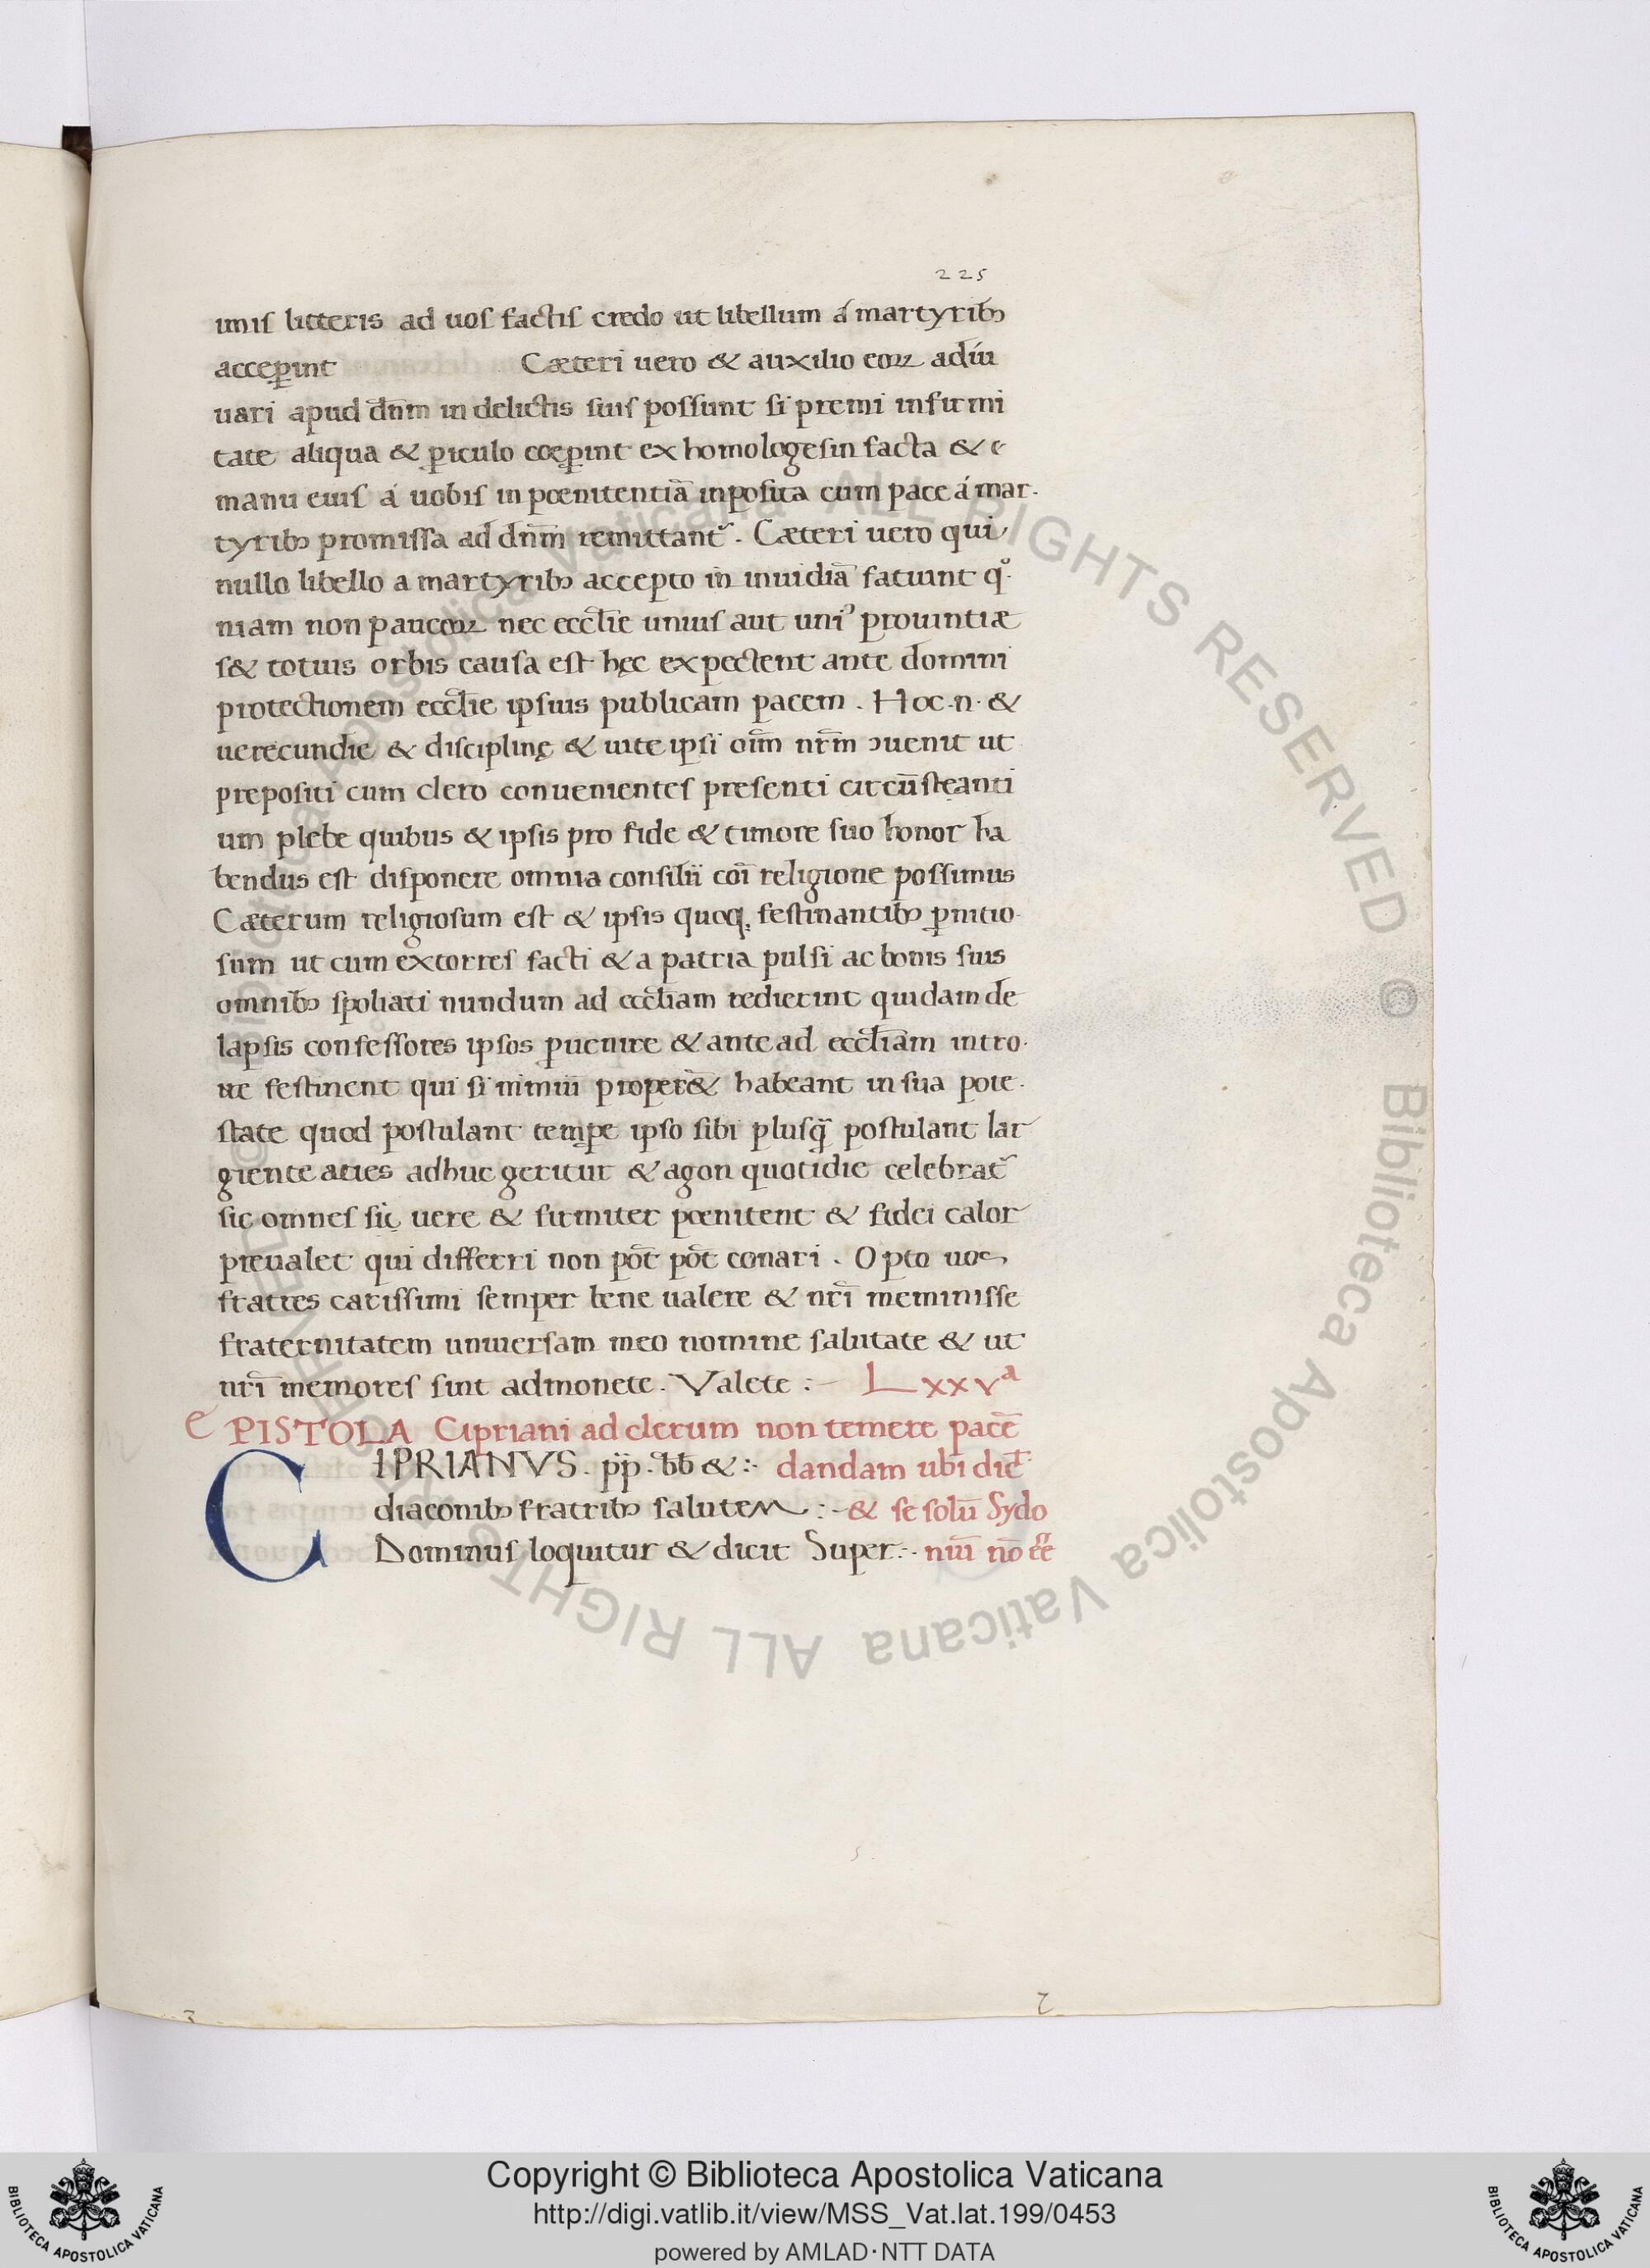 225
imis litteris ad uos factis credo ut libellum á martyribꝫ
acceꝑint Cæteri uero & auxilio eoꝝ adiu
uari apud dn̄m in delictis suis possunt si premi infirmi
tate aliqua & ꝑiculo coeꝑint ex homologesin facta &
manu eius á uobis in pœnitentiā inposita cum pace á mar.
tyribꝫ promissa ad dn̄m remittant᷑. Cæteri uero qui
nullo libello a martyribꝫ accepto in inuidiā faciunt qͦ.
niam non paucoꝝ nec ecclīe unius aut uniꝰ prouintiæ
s& totuis orbis causa est hęc expectent ante domini
protectionem ecclīe ipsius publicam pacem. Hoc .n. &
uerecundie & disciplinę & uite ipsi oīm nr̄m ꝯuenit ut
prepositi cum clero conuenientes presenti circūsteanti
um plebe quibus & ipsis pro fide & timore suo honor ha
bendus est disponere omnia consilii coī religione possimus
Cæterum religiosum est & ipsis quoqꝫ festinantibꝫ ꝑnitio
sum ut cum extorres facti & a patria pulsi ac bonis suis
omnibꝫ spoliati nundum ad eccl̄iam redierint quidam de
lapsis confessores ipsos p̄uenire & ante ad eccl̄iam intro.
ire festinent qui si nimiū proper& habeant in sua pote.
state quod postulant tempe ipso sibi plusꝗ̄ postulant lar
giente acies adhuc geritur & agon quotidie celebrat᷑
sic omnes sic uere & firmiter pœnitent & fidei calor
preualet qui differri non pōt pōt conari. Opto uos
fratres carissimi semper bene ualere & nr̄i meminisse
fraternitatem uniuersam meo nomine salutate & ut
nr̄i memores sint admonete. Valete :– Lxxvᵃ
EPISTOLA Cipriani ad clerum non temere pacē
CIPRIANVS. pp̄. b̄b̄ &:· dandam ubi dic̄t
diaconibꝫ fratribꝫ salutem :– & se solū Sydo
Dominus loquitur & dicit Super:· niū nō ēē
Copyright © Biblioteca Apostolica Vaticana
http://digi.vatlib.it/view/MSS_Vat.lat.199/0453
powered by AMLAD·NTT DATA